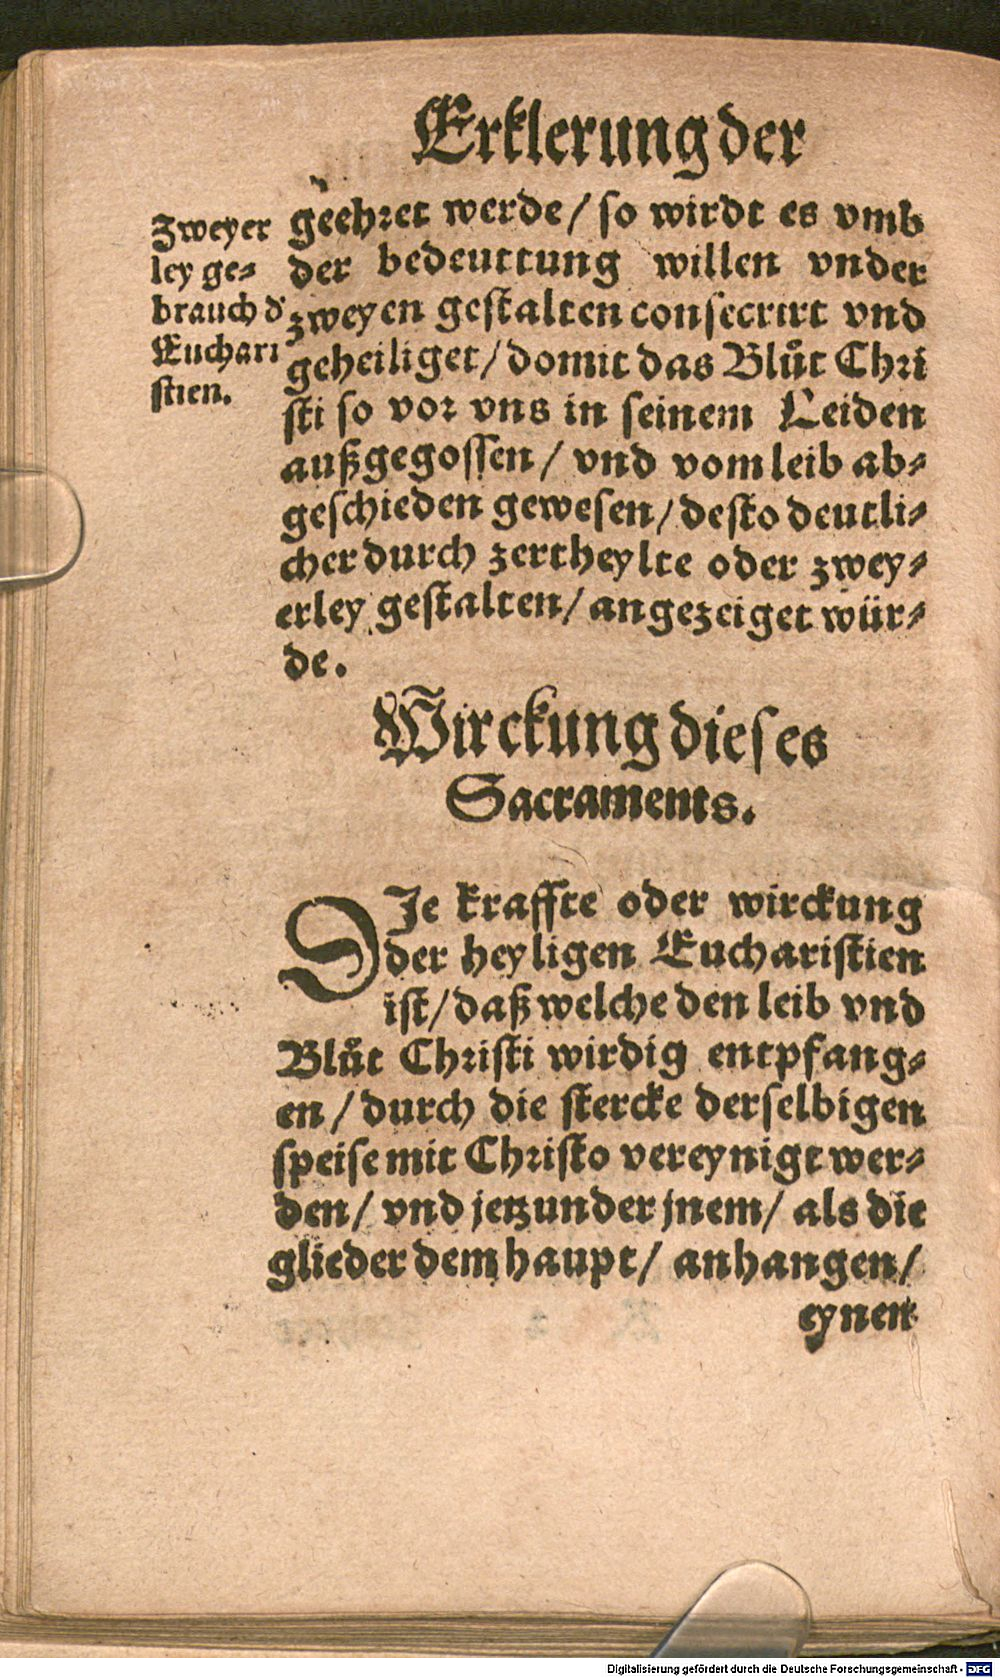 Erklerung der
Zweyer
ley ge⸗
brauch d'
Euchari
stien.
geehret werde / so wirdt es vmb
der bedeuttung willen vnder
zweyen gestalten consecrirt vnd
geheiliget / domit das Blůt Chri
sti so vor vns in seinem Leiden
außgegossen / vnd vom leib ab⸗
geschieden gewesen / desto deutli⸗
cher durch zertheylte oder zwey⸗
erley gestalten / angezeiget wür⸗
de.
Wirckung dieses
Sacraments.
DIe kraffte oder wirckung
der heyligen Eucharistien
ist / daß welche den leib vnd
Blůt Christi wirdig entpfang⸗
en / durch die stercke derselbigen
speise mit Christo vereynigt wer⸗
den / vnd jetzunder jnem / als die
glieder dem haupt / anhangen /
eynen
Digitalisierung gefördert durch die Deutsche Forschungsgemeinschaft - DFG